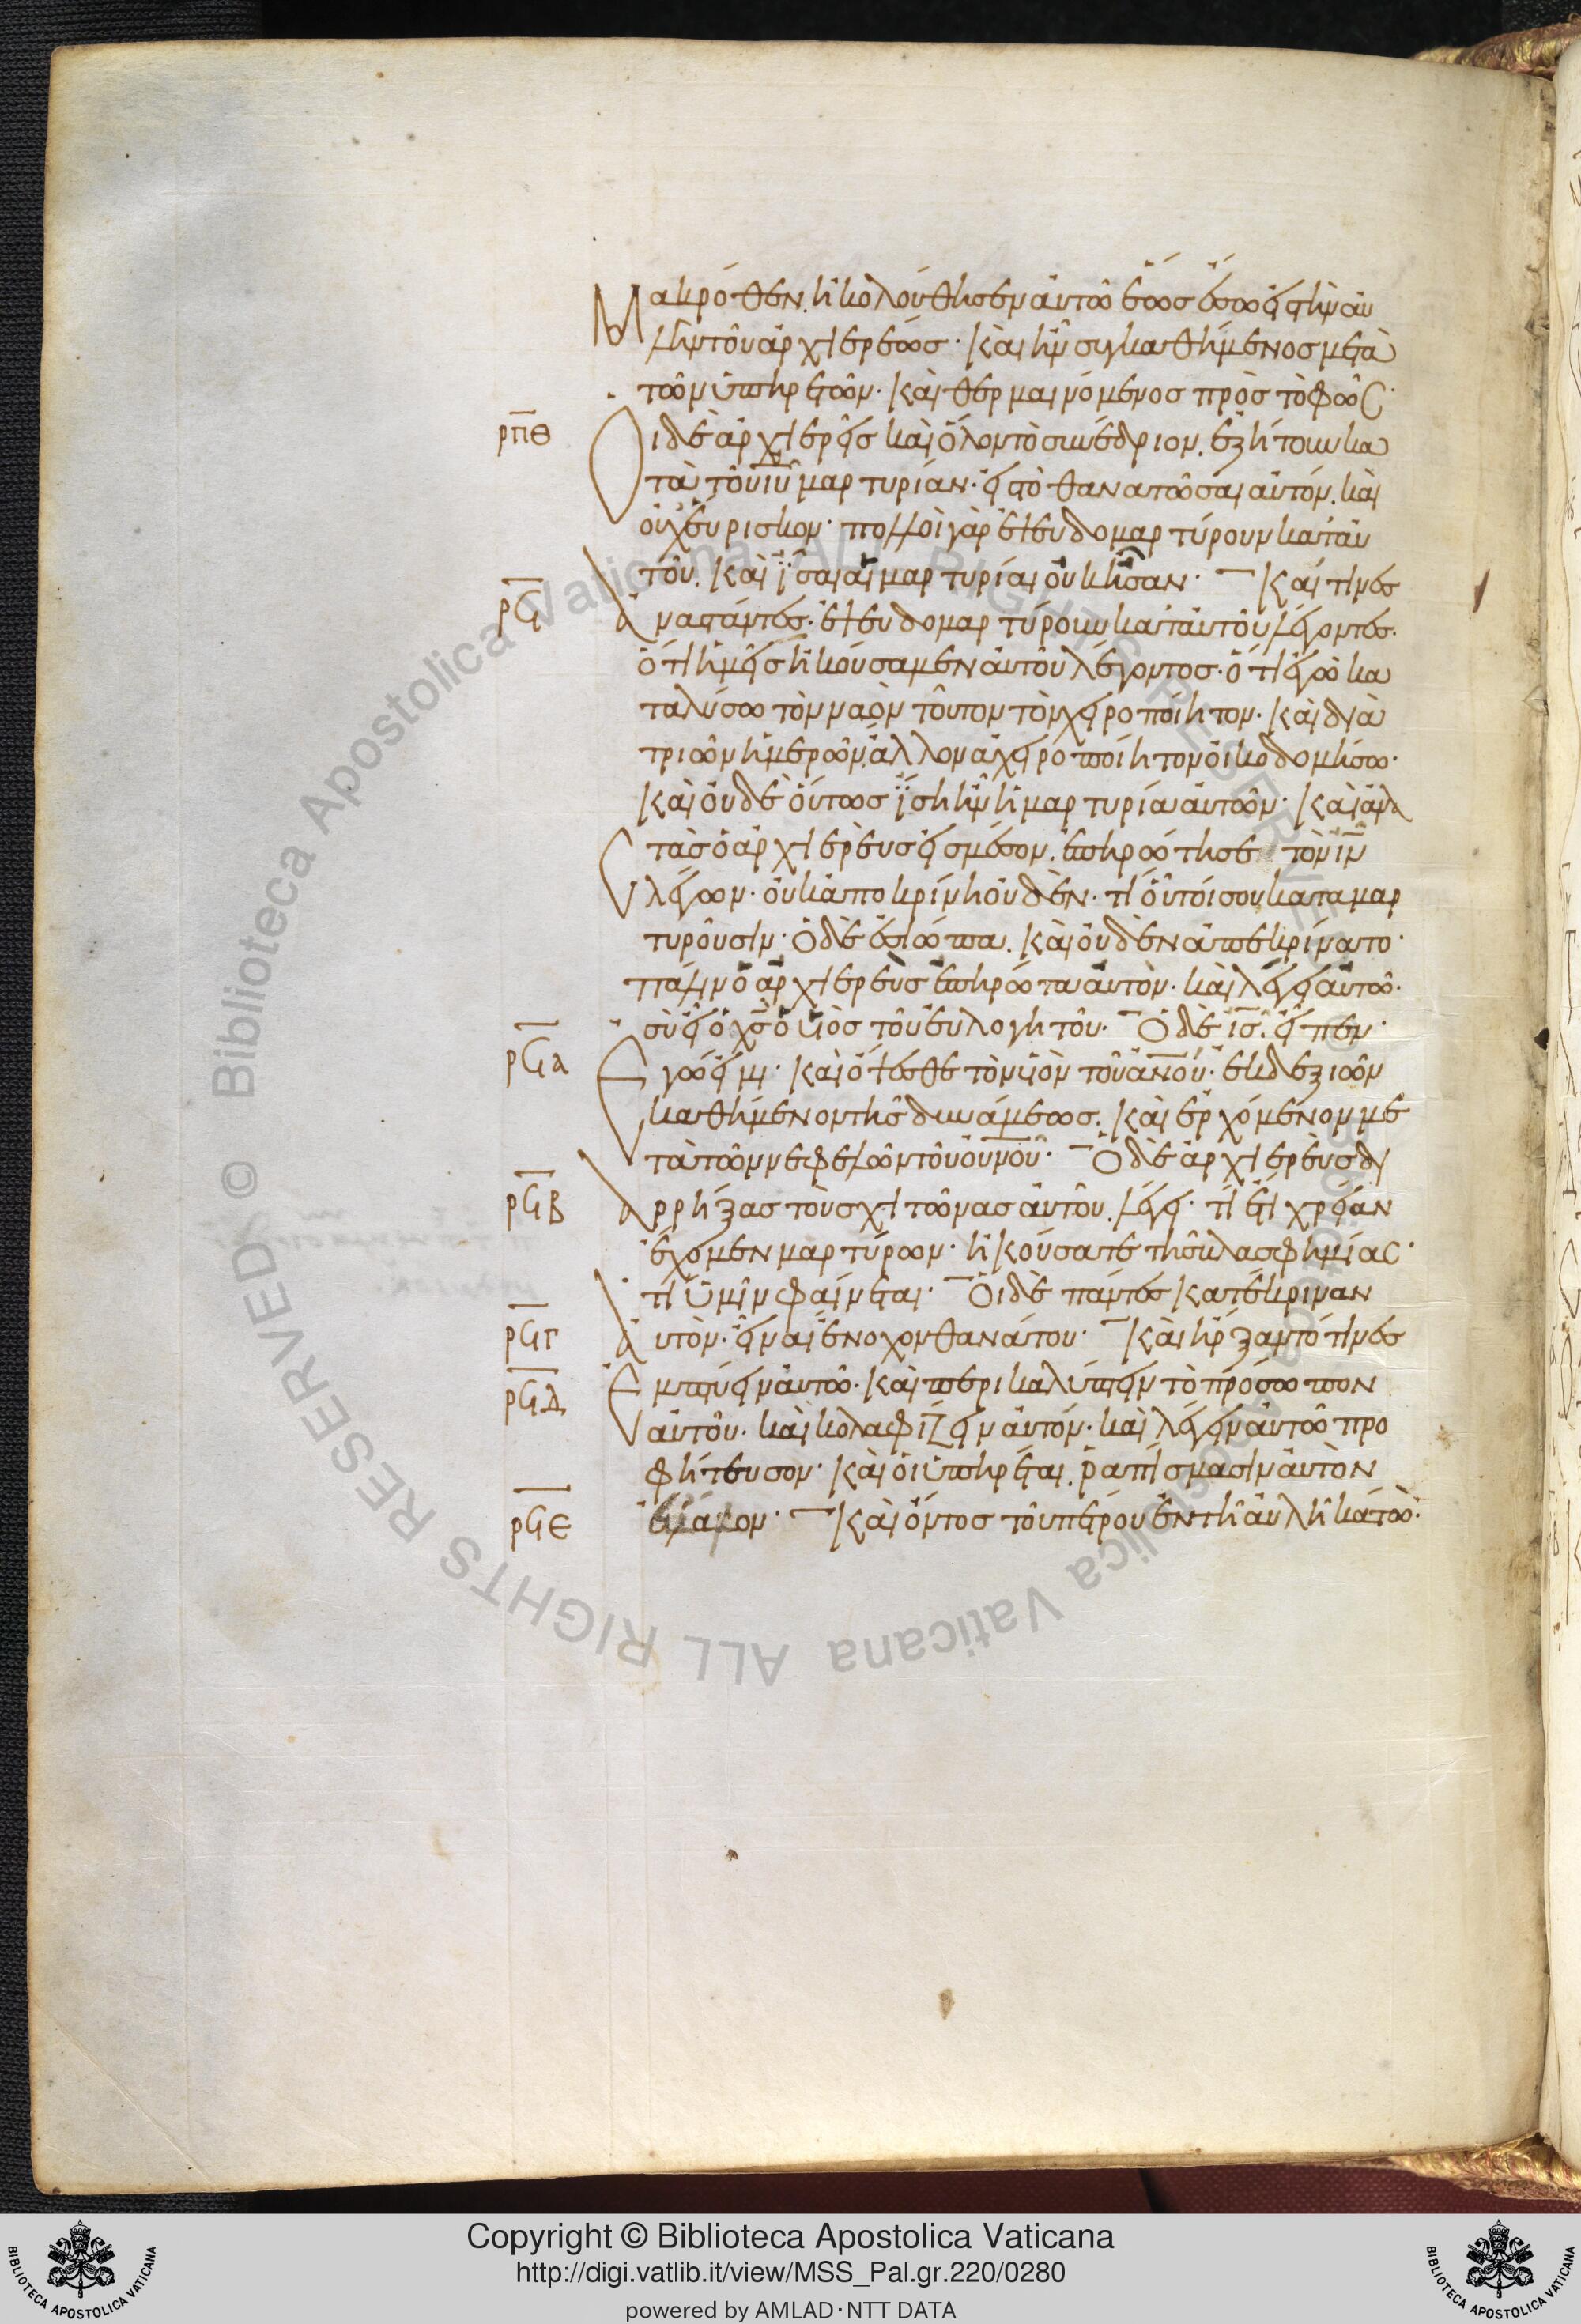 Μακρόθεν. ἠκολούθησεν αὐτῶ ἕως ἔσω εἰς τὴν αὐ
λὴν τοῦ ἀρχιερέως· καὶ ἦν συγκαθήμενος μετὰ
τῶν ὑπηρετῶν· καὶ θερμαινόμενος πρὸς τὸ φῶς·
ρπθ Οἱ δὲ ἀρχιερεῖς καὶ ὅλον τὸ συνέδριον. ἐζήτουν κα
τὰ τοῦ ιυ μαρτυρίαν· εἰς τὸ θανατῶσαι αὐτόν. καὶ
οὐχ εὕρισκον· πολλοὶ γὰρ ἐψευδομαρτύρουν κατ' αὐ
τοῦ. καὶ ἴσαι αἱ μαρτυρίαι οὐκ ἦσαν· Καί τινες
ρϟ ἀναστάντες· ἐψευδομαρτύρουν κατ' αὐτοῦ λέγοντες·
ὅτι ἡμεῖς ἠκούσαμεν αὐτοῦ λέγοντος· ὅτι ἐγὼ κα
ταλύσω τὸν ναὸν τοῦτον τὸν χειροποίητον· καὶ διὰ
τριῶν ἡμερῶν ἄλλον ἀχειροποίητον οἰκοδομήσω·
καὶ οὐδὲ οὕτως ἴση ἦν ἡ μαρτυρία αὐτῶν· καὶ ἀνα
στὰς ὁ ἀρχιερεὺς εἰς μέσον. ἐπηρώτησε τὸν ιν
λέγων· οὐκ ἀποκρίνη οὐδὲν· τί οὗτοί σου καταμαρ
τυροῦσιν· Ὁ δὲ ἐσιώπα. καὶ οὐδὲν ἀπεκρίνατο·
πάλιν ὁ ἀρχιερεὺς ἐπηρώτα αὐτὸν· καὶ λέγει αὐτῶ·
σὺ εἶ ὁ χς ὁ υἱὸς τοῦ εὐλογητοῦ· Ὁ δὲ ις. εἶπεν·
ρϟα Ἐγώ εἰμι· καὶ ὄψεσθε τὸν υἱὸν τοῦ ανου· ἐκ δεξιῶν
καθήμενον τῆς δυνάμεως. καὶ ἐρχόμενον με
τὰ τῶν νεφελῶν τοῦ ουνου· Ὁ δὲ ἀρχιερεὺς δι
ρϟβ αρρήξας τοὺς χιτῶνας αὐτοῦ. λέγει· τί ἔτι χρείαν
ἔχομεν μαρτύρων· ἠκούσατε τῆς βλασφημίας·
τί ὑμῖν φαίνεται· Οἱ δὲ πάντες κατέκριναν
ρϟγ αὐτὸν· εἶναι ἔνοχον θανάτου· Καὶ ἤρξαντό τινες
ρϟδ ἐμπτύειν αὐτῶ· καὶ περικαλύπτειν τὸ πρόσωπον
αὐτοῦ· καὶ κολαφίζειν αὐτόν· καὶ λέγειν αὐτῶ προ
φήτευσον· καὶ οἱ ὑπηρέται. ῥαπίσμασιν αὐτὸν
ρϟε ἔβαλον· Καὶ ὄντος τοῦ πέτρου ἐν τῆ αὐλῆ κάτω·
Copyright © Biblioteca Apostolica Vaticana
http://digi.vatlib.it/view/MSS_Pal.gr.220/0280
powered by AMLAD·NTT DATA
BIBLIOTECA APOSTOLICA VATICANA
BIBLIOTECA APOSTOLICA VATICANA
© Biblioteca Apostolica Vaticana ALL RIGHTS RESERVED
© Biblioteca Apostolica Vaticana ALL RIGHTS RESERVED